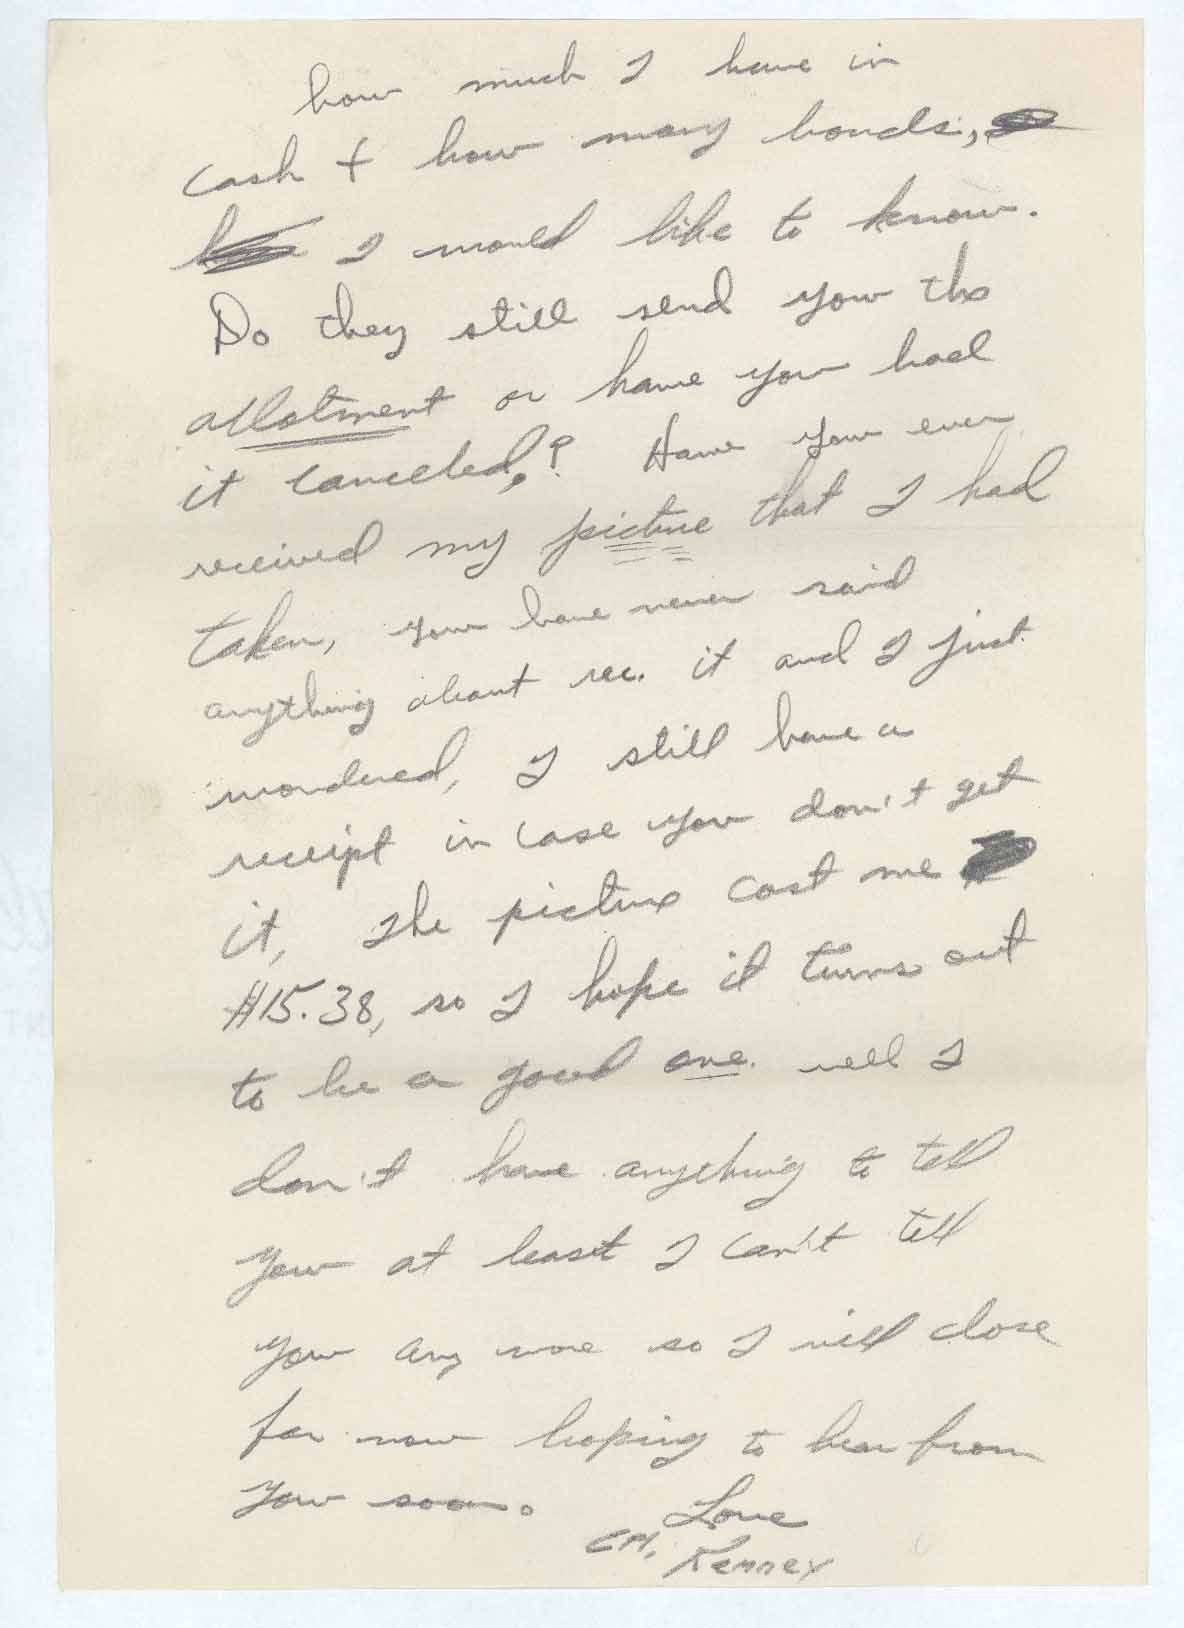 how much I have in
cash + how many bonds,
I would like to know.
Do they still send you the
allotment or have you had
it canceled,? Have you ever
received my picture that I had
taken, you have never said
anything about rec. it and I just
wondered, I still have a
receipt in case you don't get
it, The picture cost me
$15.38, so I hope it turns out
to be a good one. well I
don't have anything to tell
you at least I can't tell
you any more so I will close
for now hoping to hear from
you soon.
Love
Cpl. Kenney